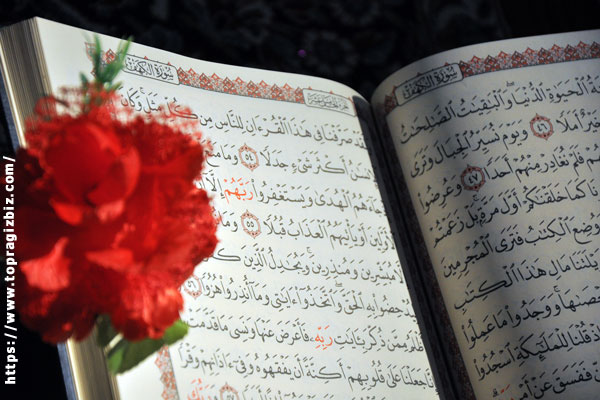 سُورَةُ الْكَهْفِ
الْحَيَوٰةِ الدُّنْيَا وَالْبَٰقِيَٰتُ الصَّٰلِحَٰتُ
أَمَلًا ٤٦ وَيَوْمَ نُسَيِّرُ الْجِبَالَ وَتَرَى
فَلَمْ نُغَادِرْ مِنْهُمْ أَحَدًا ٤٧ وَعُرِضُوا
كَمَا خَلَقْنَٰكُمْ أَوَّلَ مَرَّةٍ بَلْ زَعَمْتُمْ
وَوُضِعَ الْكِتَٰبُ فَتَرَى الْمُجْرِمِينَ
مَالِ هَٰذَا الْكِتَٰبِ
وَوَجَدُوا مَا عَمِلُوا
قُلْنَا لِلْمَلَٰٓئِكَةِ اسْجُدُوا
فَفَسَقَ عَنْ أَمْرِ
سُورَةُ الْكَهْفِ
صَرَّفْنَا فِي هَٰذَا الْقُرْءَانِ لِلنَّاسِ مِن كُلِّ مَثَلٍ وَكَانَ
أَكْثَرَ شَيْءٍ جَدَلًا ٥٤ وَمَا
الْهُدَىٰ وَيَسْتَغْفِرُوا رَبَّهُمْ إِلَّا
أَوْ يَأْتِيَهُمُ الْعَذَابُ قُبُلًا ٥٥ وَمَا
مُبَشِّرِينَ وَمُنذِرِينَ وَيُجَٰدِلُ الَّذِينَ
بِهِ الْحَقَّ وَاتَّخَذُوا ءَايَٰتِي وَمَا أُنذِرُوا هُزُوًا ٥٦
مِمَّن ذُكِّرَ بِـَٔايَٰتِ رَبِّهِ فَأَعْرَضَ عَنْهَا وَنَسِيَ مَا قَدَّمَتْ
جَعَلْنَا عَلَىٰ قُلُوبِهِمْ أَكِنَّةً أَن يَفْقَهُوهُ وَفِي ءَاذَانِهِمْ
https://www.topragizbiz.com/